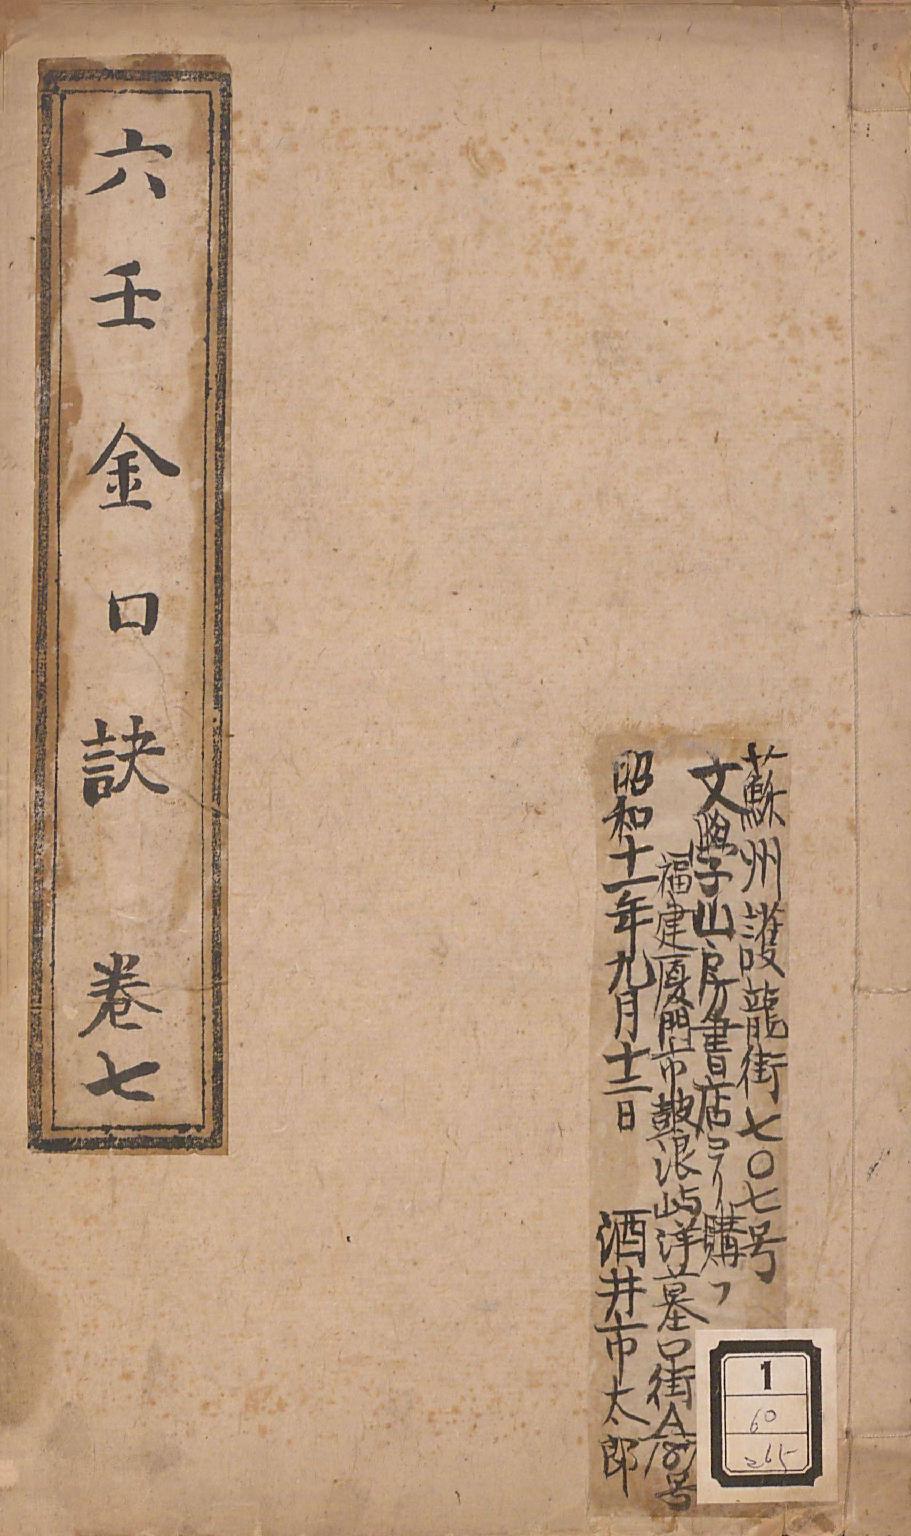 蘇州護龍街七〇七号
文學山房書店ヨリ購フ
福建厦門市鼓浪屿洋墓口街A187号
昭和十一年九月十二日 酒井市太郎
六壬金口訣 卷七
1
60
265